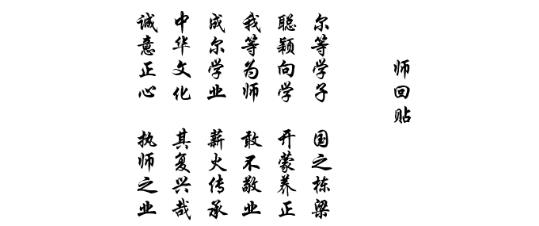 师回贴
尔等学子 国之栋梁
聪颖向学 开蒙养正
我等为师 敢不敬业
成尔学业 薪火传承
中华文化 其复兴哉
诚意正心 执师之业